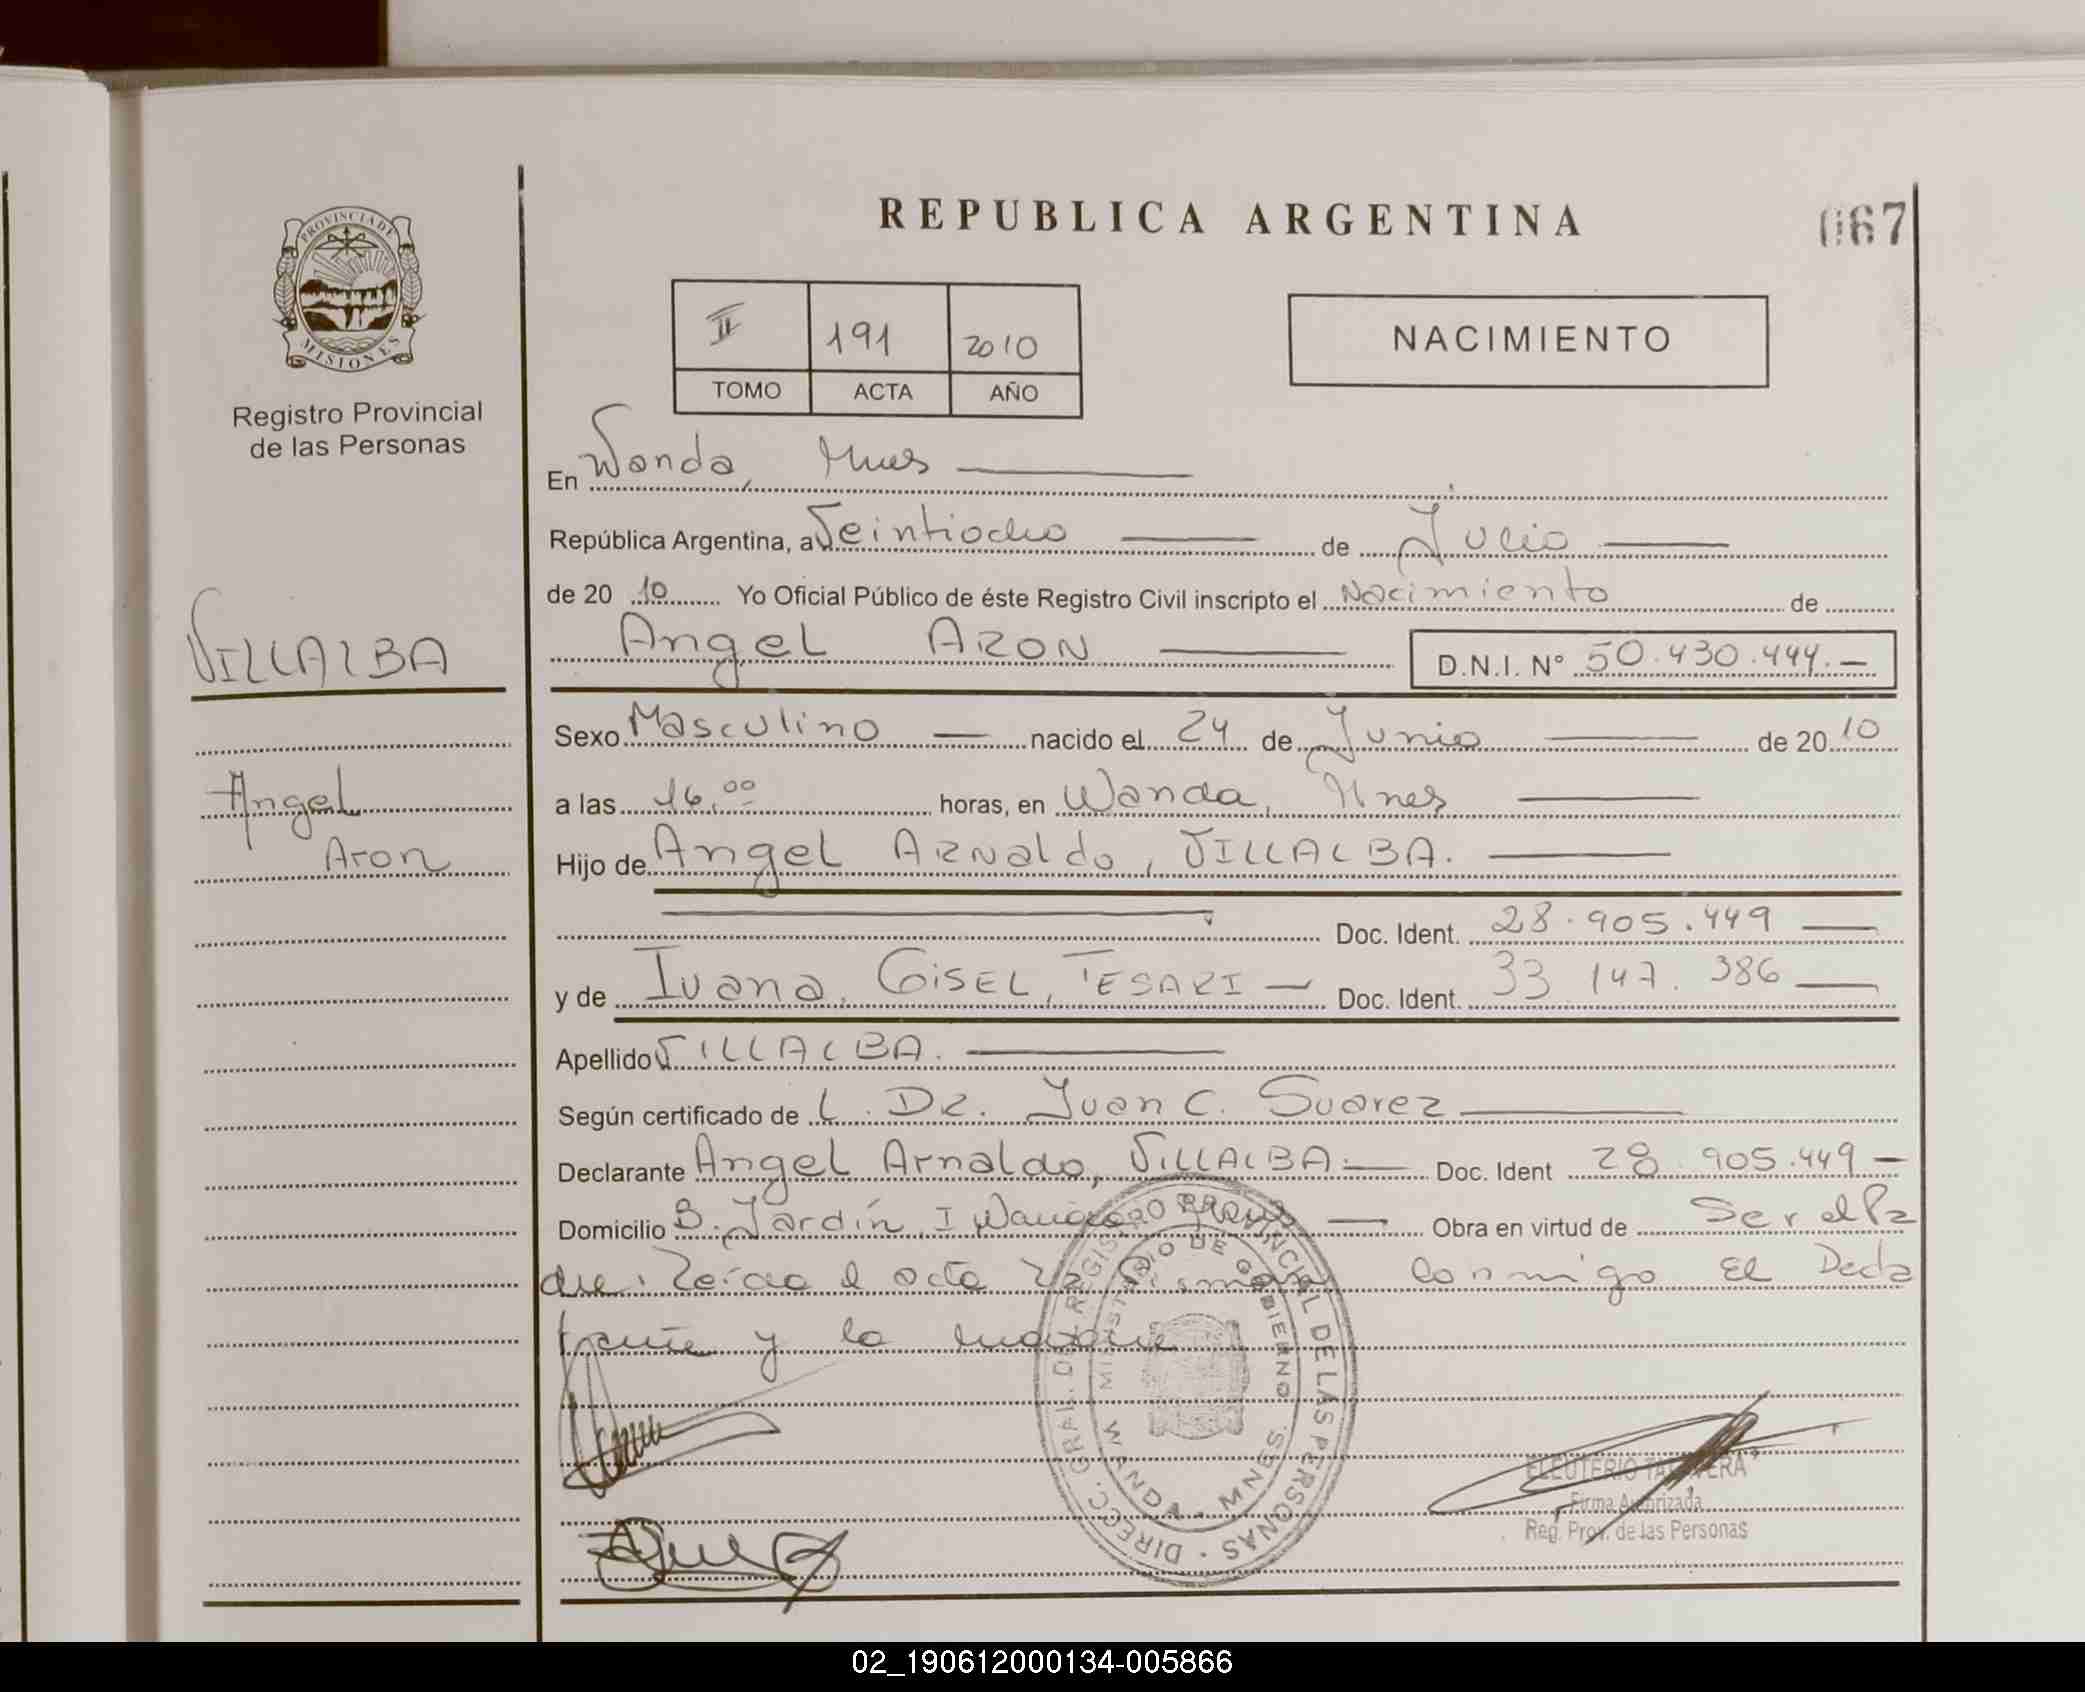 REPUBLICA ARGENTINA
067
PROVINCIA DE MISIONES
Registro Provincial
de las Personas
II 191 2010
TOMO ACTA AÑO
NACIMIENTO
En Wanda, Mnes
República Argentina, a Veintiocho de Julio
de 20 10 Yo Oficial Público de éste Registro Civil inscripto el Nacimiento de
Angel ARON D.N.I. N° 50.430.444.
VILLALBA
Angel
Aron
Sexo Masculino nacido el 24 de Junio de 20 10
a las 16,00 horas, en Wanda, Mnes
Hijo de Angel ARNaldo, VILLALBA.
Doc. Ident. 28.905.449
y de Ivana, GISEL, TESARI Doc. Ident. 33 147. 386
Apellido VILLALBA.
Según certificado de L. DR. Juan C. Suarez
Declarante Angel Arnaldo, VILLALBA. Doc. Ident 28.905.449
Domicilio B. Jardín, I Wanda Obra en virtud de Ser el Pa
dre. Leída el acta conmigo El Decla
rante y la madre
DIRECC. GRAL. DEL REGISTRO PROVINCIAL DE LAS PERSONAS
MINISTERIO DE GOBIERNO
WANDA - MNES.
ELEUTERIO TALAVERA
Firma Autorizada
Reg. Prov. de las Personas
02_190612000134-005866